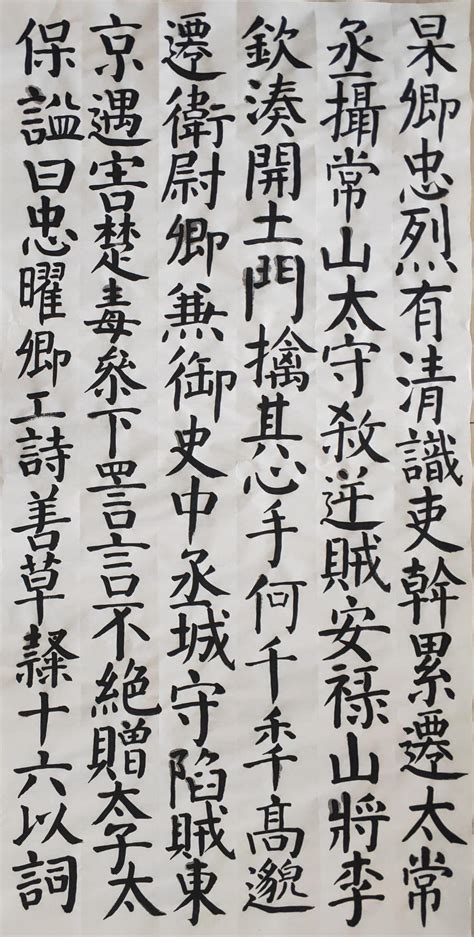 杲卿忠烈有清識吏幹累遷太常
丞攝常山太守殺逆賊安祿山將李
欽湊開土門擒其心手何千秊高邈
遷衛尉卿兼御史中丞城守陷賊東
京遇害楚毒叅下詈言不絕贈太子太
保謚曰忠曜卿工詩善草隸十六以詞